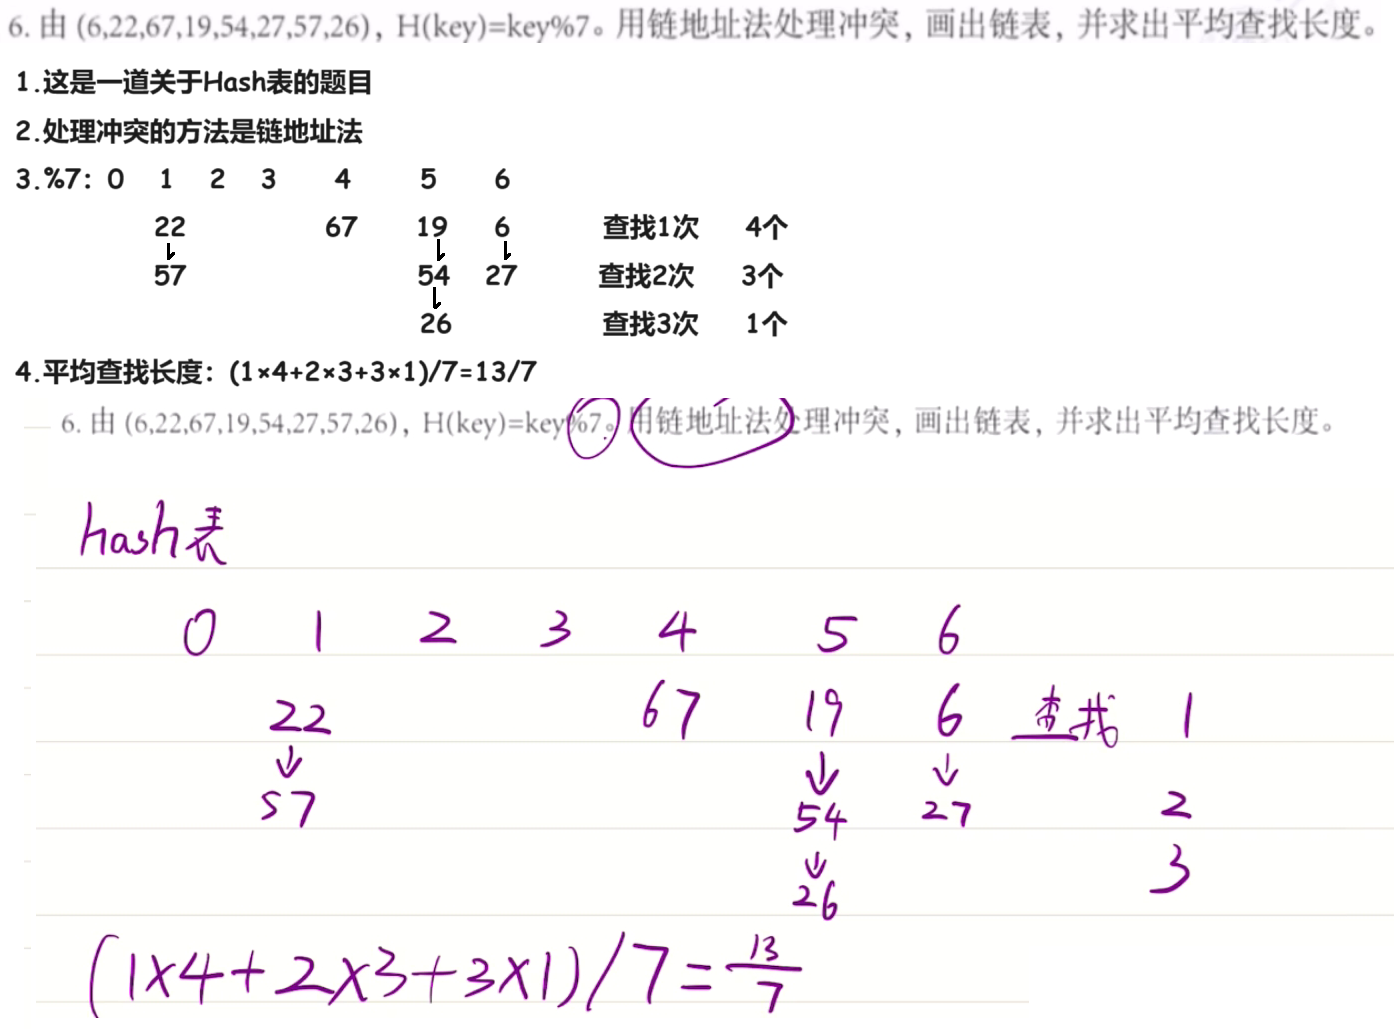 6. 由 (6,22,67,19,54,27,57,26)，H(key)=key%7。用链地址法处理冲突，画出链表，并求出平均查找长度。
1.这是一道关于Hash表的题目
2.处理冲突的方法是链地址法
3.%7: 0 1 2 3 4 5 6
22 67 19 6 查找1次 4个
57 54 27 查找2次 3个
26 查找3次 1个
4.平均查找长度：(1×4+2×3+3×1)/7=13/7
6. 由 (6,22,67,19,54,27,57,26)，H(key)=key%7。用链地址法处理冲突，画出链表，并求出平均查找长度。
hash表
0 1 2 3 4 5 6
22 67 19 6 查找 1
↓ ↓ ↓
57 54 27 2
↓ 3
26
(1×4+2×3+3×1)/7=13/7